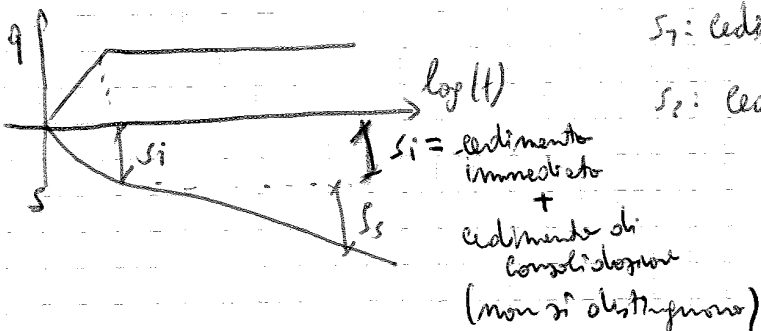 q
s₁: cedi
log(t)
s₂: ced
si
si = cedimento
immediato
+
s
Ss
cedimento di
consolidazione
(non si distinguono)